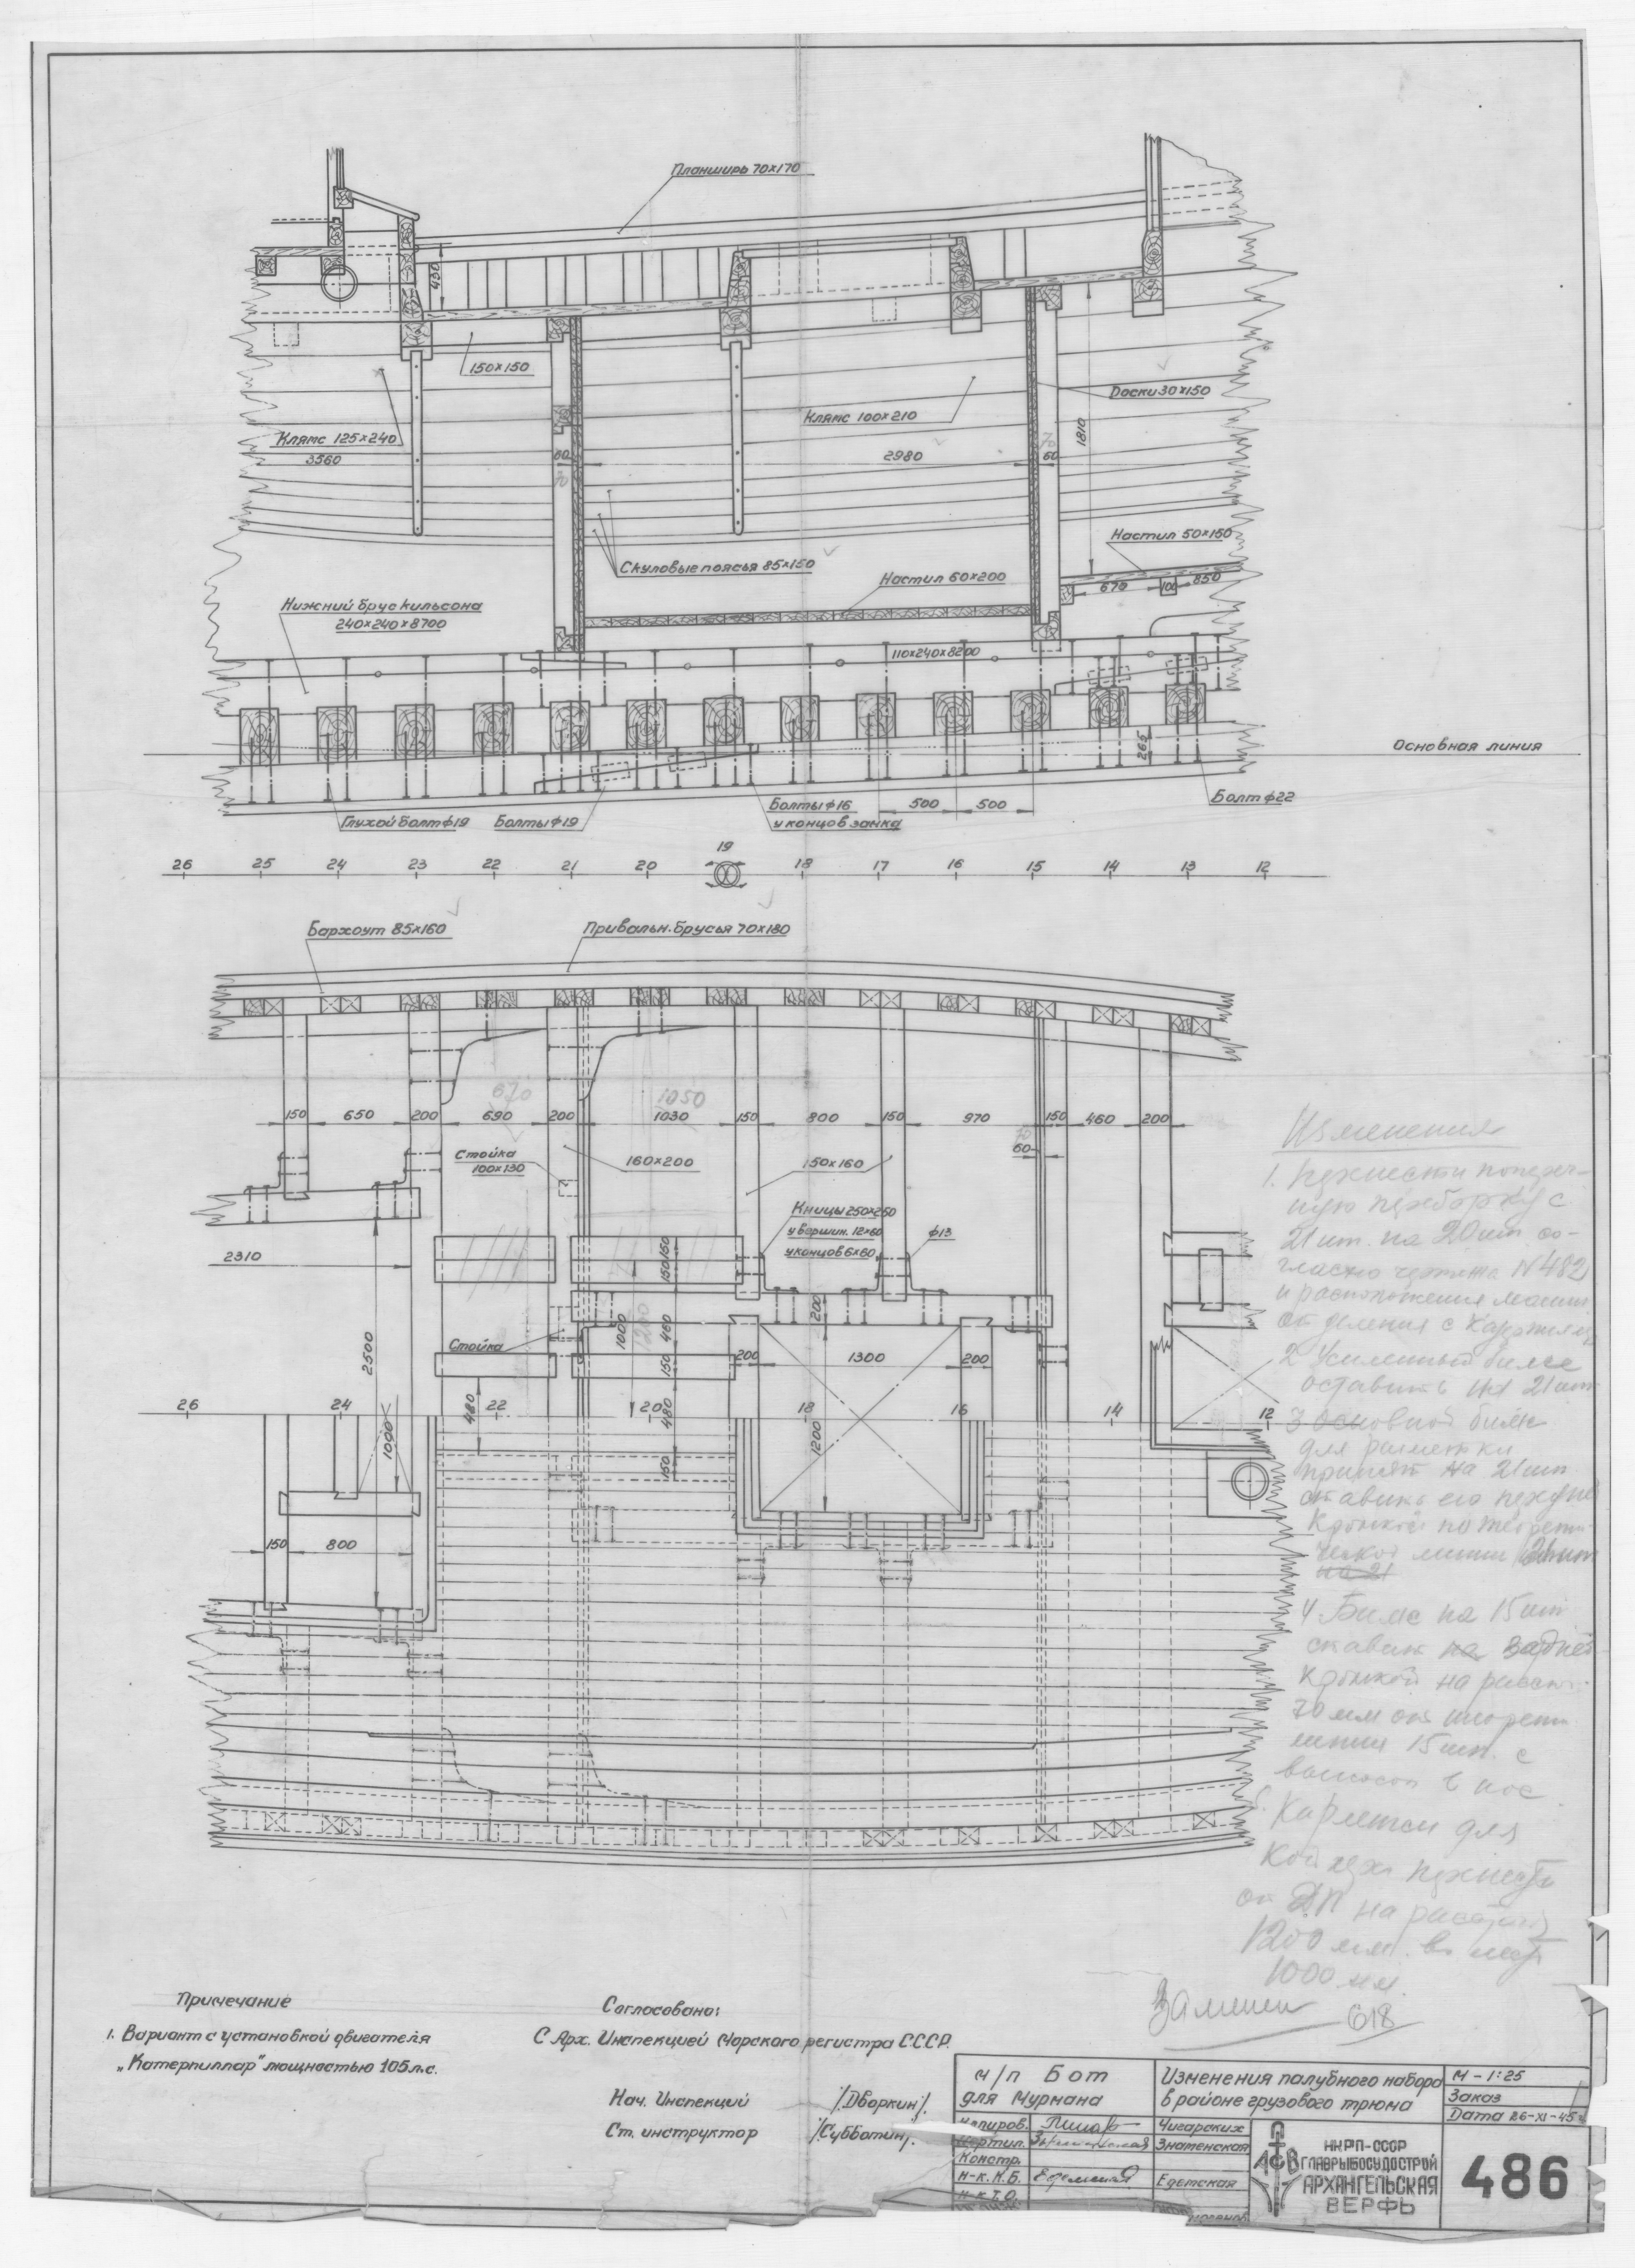 Планширь 70×170
430
150×150
Клямс 125×240
3560
Клямс 100×210
Доски 30×150
1810
80
70
2980
70
60
Скуловые поясья 85×150
Настил 50×150
Настил 60×200
670
100
850
Нижний брус кильсона
240×240×8700
110×240×8200
265
Основная линия
Глухой болт ф19
Болты ф19
Болты ф16
у концов замка
500
500
Болт ф22
26 25 24 23 22 21 20 19 18 17 16 15 14 13 12
Бархоут 85×160
Привальн. брусья 70×180
670
1050
150 650 200 690 200 1030 150 800 150 970 150 460 200
70
60
Стойка
100×130
160×200
150×160
Кницы 250×250
у вершин. 12×60
у концов 6×60
ф13
2310
2500
Стойка
1000
1200
150
150
460
150
480
150
200
200
1300
200
480
1200
26 24 22 20 18 16 14 12
1000
150
800
Изменения
1. Перенести попереч-
ную переборку с
21 шп. на 20 шп. со-
гласно чертежа N 482
и расположения машин.
отделения с
2 Усиленный бимс
оставить на 21 шп
3 Основной бимс
для разметки
принят на 21 шп
ставить его
кромкой по теорети-
ческой линии
на 21
4 Бимс на 15 шп
ставить на задней
кромкой на расст.
70 мм от теорет
линии 15 шп. с
в нос
Карленсы для
перенести
от ДП на расстоян
1200 мм. вмест
1000 мм.
Заменен 618
Примечание
1. Вариант с установкой двигателя
„Катерпиллар" мощностью 105 л.с.
Согласовано:
С Арх. Инспекцией Морского регистра СССР.
Нач. Инспекций /Дворкин/.
Ст. инструктор /Субботин/.
м/п Бот
для Мурмана
Изменения палубного набора
в районе грузового трюма
М – 1:25
Заказ
Дата 26-XI-45
Копиров. Чигарских
Чертил. Знаменская
Констр.
Н-к. К.Б. Едемская Едемская
Н-к. Т.О.
АСВ
НКРП-СССР
ГЛАВРЫБОСУДОСТРОЙ
АРХАНГЕЛЬСКАЯ
ВЕРФЬ
486